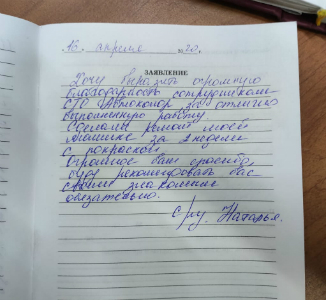 16. апреля 20г.
ЗАЯВЛЕНИЕ
Хочу выразить огромную
благодарность сотрудникам
СТО Автоколор за отлично
выполненную работу
Сделали ремонт моей
машинке за 2 недели
с покраской
Огромное вам спасибо,
буду рекомендовать вас
своим знакомым
обязательно.
с/у. Наталья.